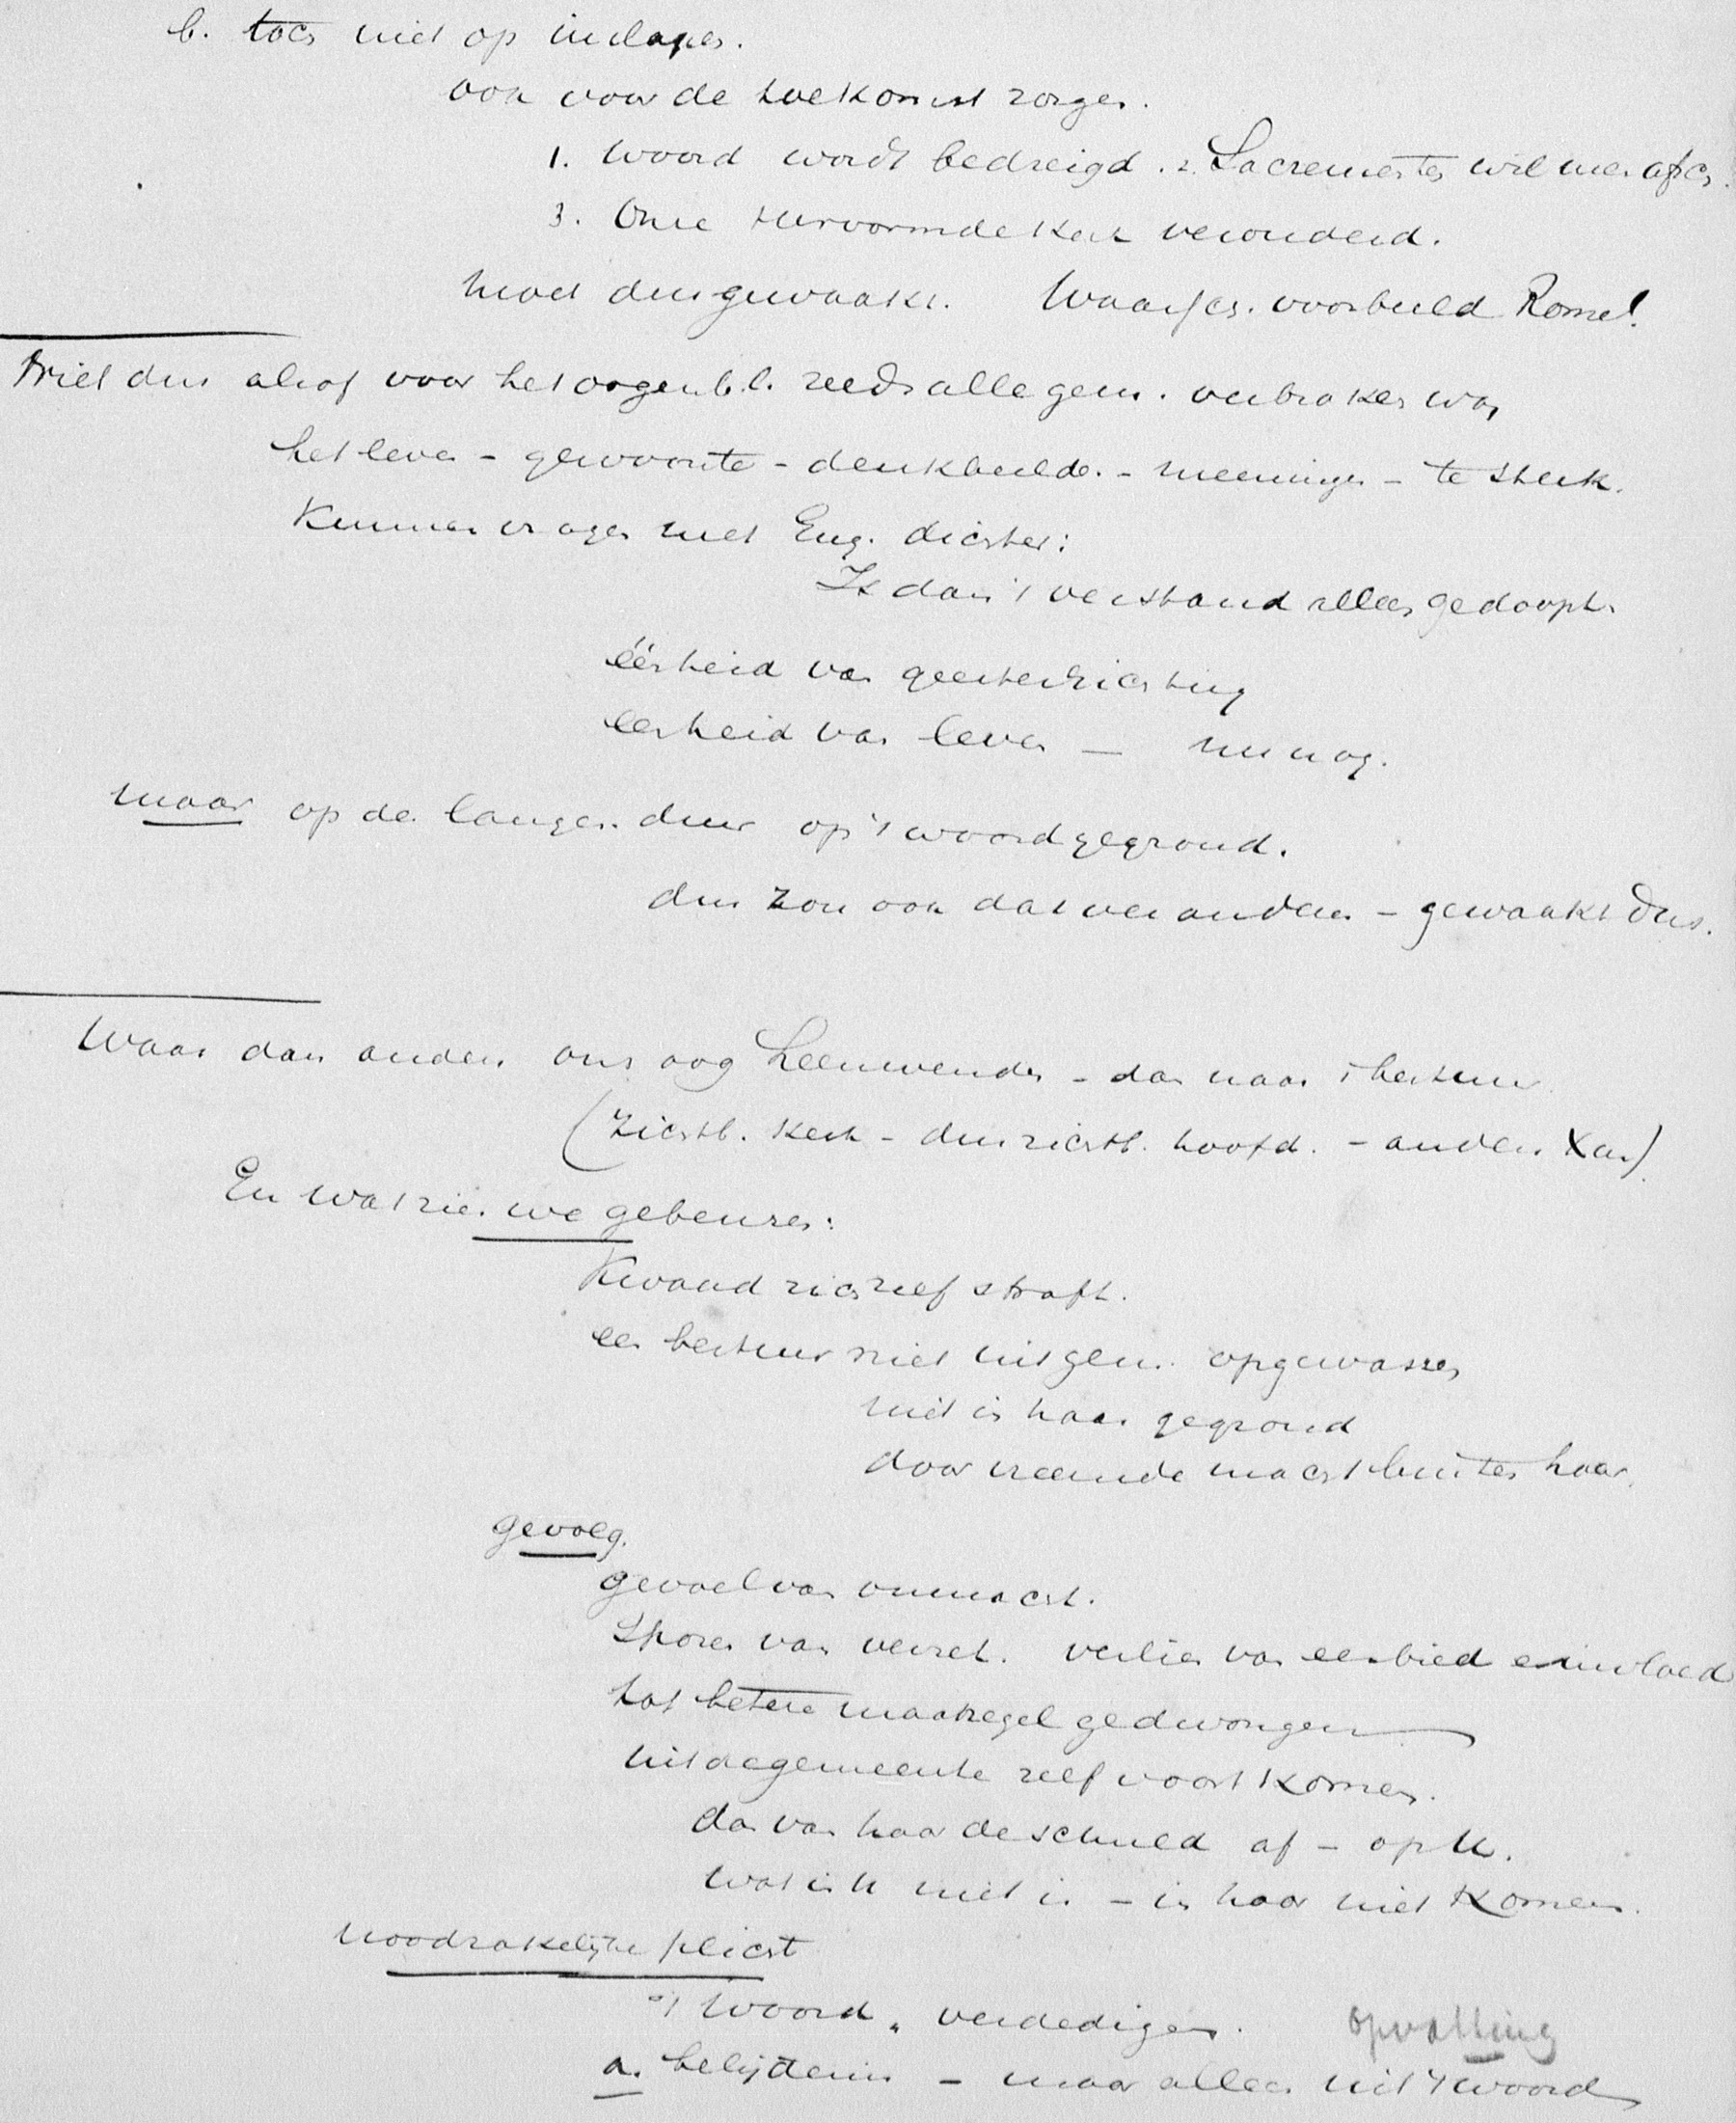 b. toch niet op inslapen.
ook voor de toekomst zorgen.
1. Woord wordt bedreigd. 2. Sacramenten wil men afsch.
3. Onze Hervormde Kerk veranderd.
Moet dus gewaakt. Waarsch. voorbeeld Rome!
Niet dus alsof voor het oogenbl. reeds alle gem. verbroken was
het leven - gewoonte - denkbeelden - meeningen - te sterk.
Kunnen vragen met Eng. dichter:
Is dan 't verstand alleen gedoopt.
éénheid van geestesrichting
eenheid van leven — nu nog.
maar op de langen duur op 't woord gegrond.
dus zou ook dat veranderen - gewaakt dus.
Waar dan anders ons oog heenwenden - dan naar 't bestuur
(Zichtb. Kerk - dus zichtb. hoofd. - anders Xus)
En wat zien we gebeuren:
Kwaad zich zelf straft.
een bestuur niet uit gem. opgewassen
niet in haar gegrond
door vreemde macht buiten haar.
gevolg.
gevoel van onmacht.
Sporen van verzet. verlies van eerbied en invloed
tot betere maatregel gedwongen
uit de gemeente zelf voortkomen.
dan van haar de schuld af - op U.
wat in U niet is - in haar niet komen.
noodzakelijke plicht
't Woord verdedigen. opvatting
a. belijdenis - maar alleen uit 't woord